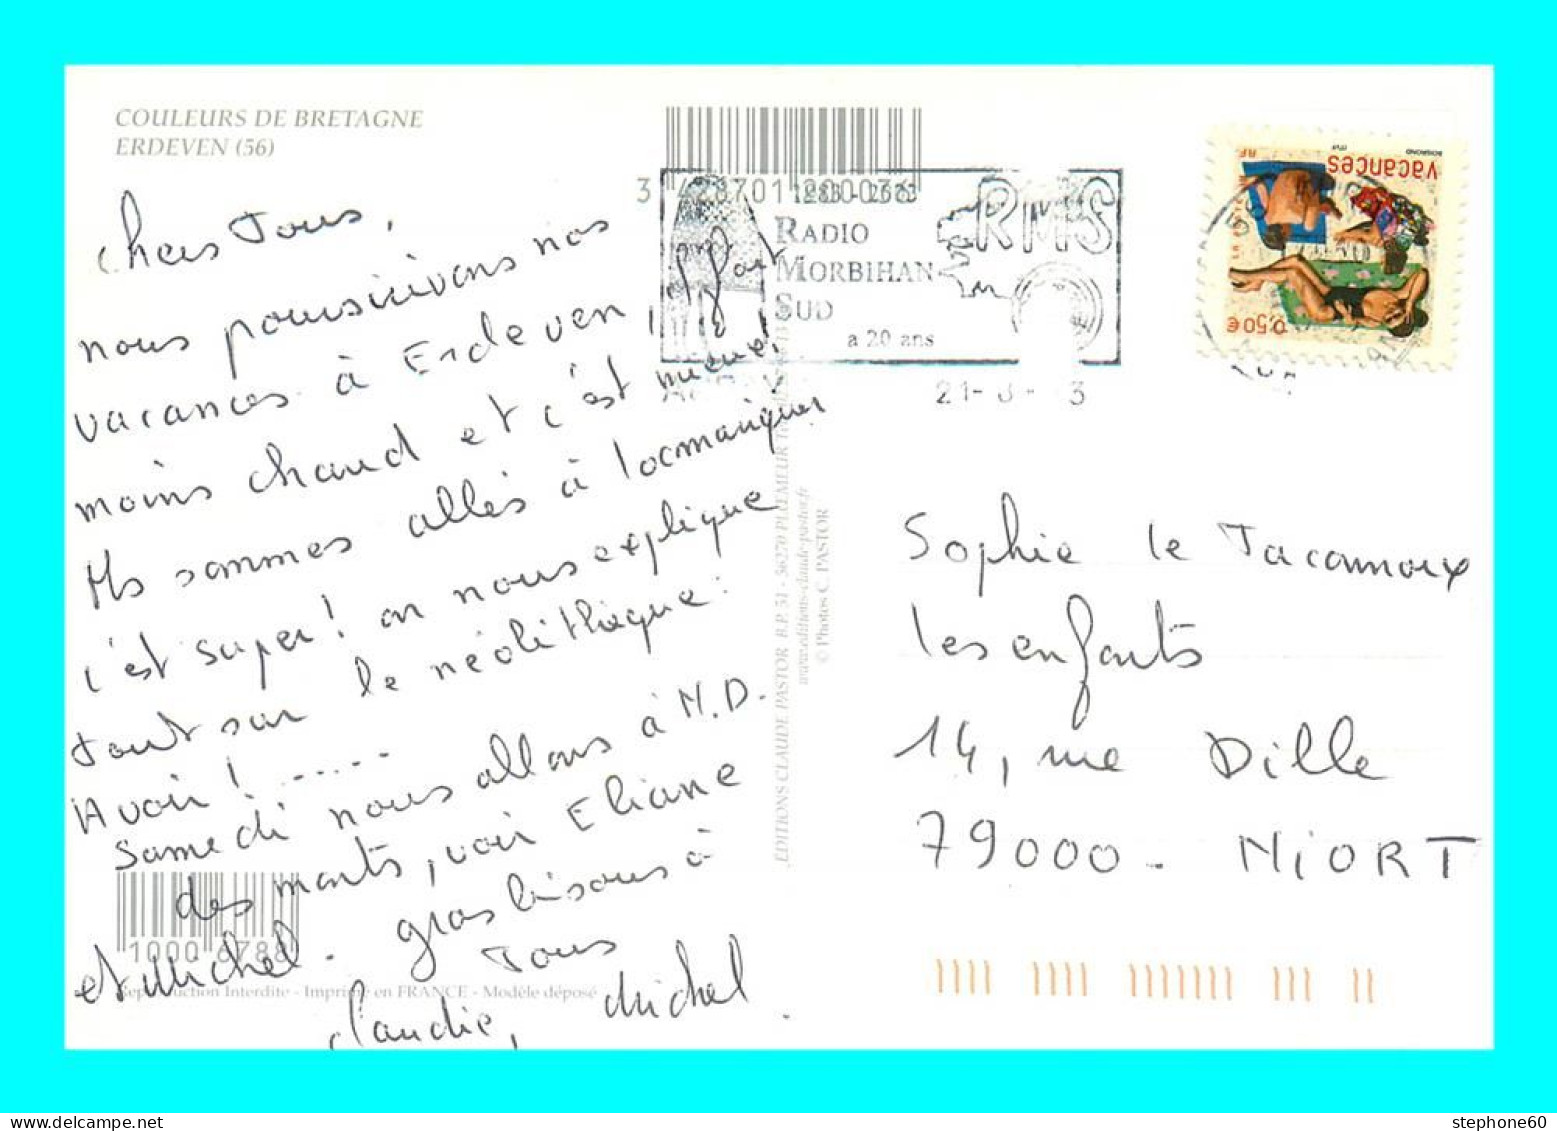 COULEURS DE BRETAGNE
ERDEVEN (56)
Chers Tous,
nous poursuivons nos
vacances à Erdeven, il fait
moins chaud et c'est mieux!
Ns sommes allés à locmariaquer
c'est super! on nous explique
tout sur le néolithique:
A voir! .....
Samedi nous allons à N.D.
des monts, voir Eliane
et Michel. gros bisous à
Tous
Claudie, Michel.
1000 6788
Reproduction Interdite - Imprimé en FRANCE - Modèle déposé
EDITIONS CLAUDE PASTOR B.P. 51 - 56270 PLŒMEUR
www.editions-claude-pastor.fr
© Photos C. PASTOR
RADIO
MORBIHAN
SUD
a 20 ans
RMS
vacances
RF
0,50€
Sophie le
les enfants
14, rue Dille
79000 - NIORT
stephone60